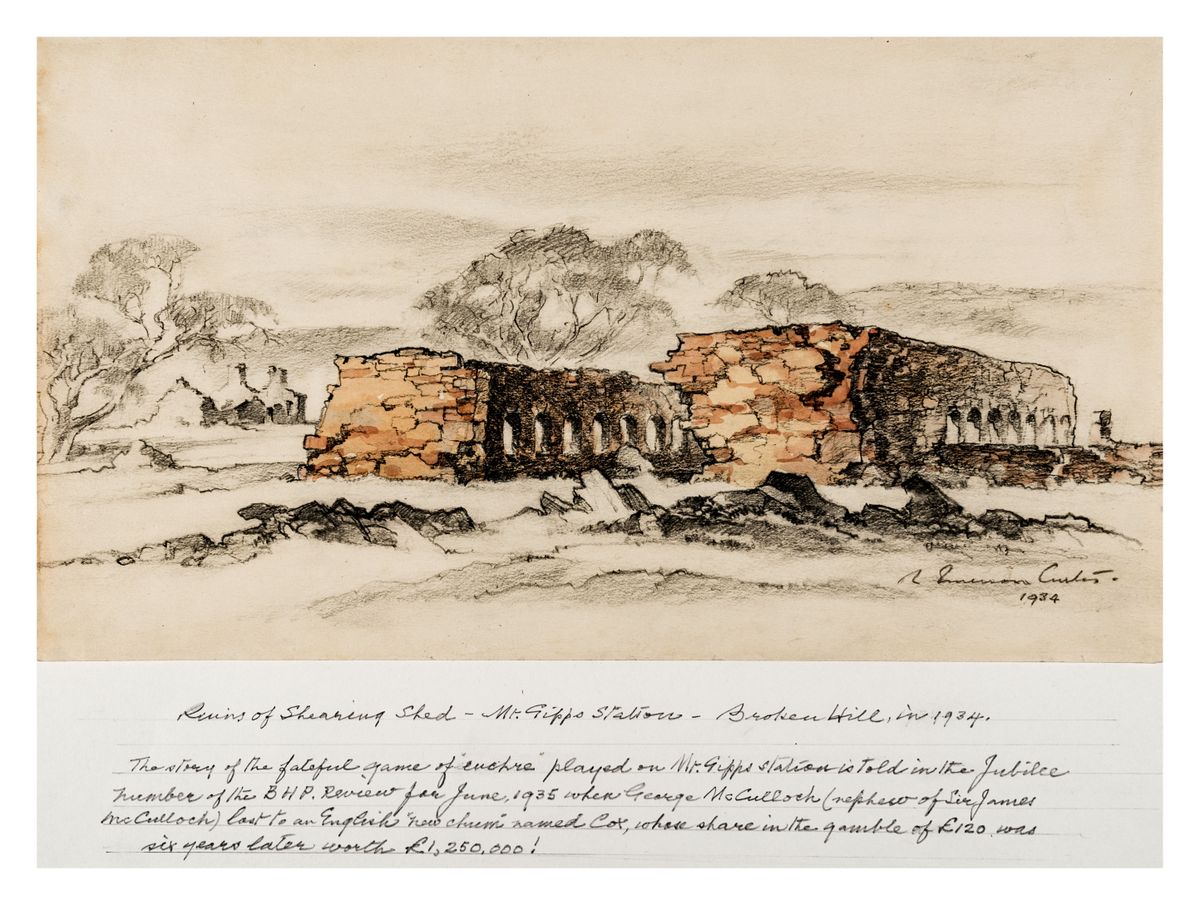 R Emerson Curtis.
1934
Ruins of Shearing Shed - Mt. Gipps Station - Broken Hill, in 1934.
The story of the fateful game of "euchre" played on Mt. Gipps station is told in the Jubilee
number of the B H P. Review for June, 1935 when George McCulloch (nephew of Sir James
McCulloch) lost to an English "new chum" named Cox, whose share in the gamble of £120 was
six years later worth £1,250,000!